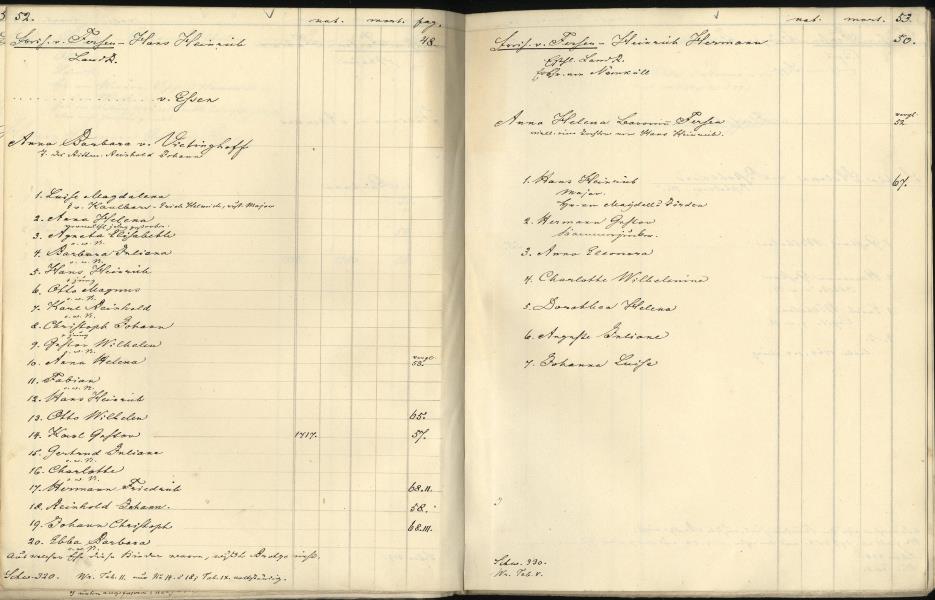 52. nat. mort. pag.
v. Fersen - Hans Heinrich 48.
LandR.
v. Essen
Anna Barbara v. Vietinghoff
T. des Rittm. Reinhold Johann
1. Luise Magdalena
v. Kaulbars - Major
2. Anna Helena
3. Agneta Elisabeth
o. w. N.
4. Barbara Juliana
o. w. N.
5. Hans Heinrich
† jung
6. Otto Magnus
o. w. N.
7. Karl Reinhold
o. w. N.
8. Christoph Johann
† jung
9. Gustav Wilhelm
o. w. N.
10. Anna Helena vergl. 53.
11. Fabian
o. w. N.
12. Hans Heinrich
13. Otto Wilhelm 65.
14. Karl Gustav 1717. 57.
15. Gertrud Juliane
o. w. N.
16. Charlotte
o. w. N.
17. Hermann Friedrich 68.II.
18. Reinhold Johann. 58.
19. Johann Christoph 68.III.
20. Ebba Barbara
o. w. N.
Aus welcher Ehe diese Kinder waren,
Schw. 320. Wr. Tab. II.
nat. mort. 53.
v. Fersen - Heinrich Hermann 50.
LandR.
Anna Helena Fersen vergl. 52.
von Hans Heinrich.
1. Hans Heinrich 67.
Major.
2. Hermann Gustav
Kammerjunker.
3. Anna Eleonora
4. Charlotte Wilhelmine
5. Dorothea Helena
6. Auguste Juliane
7. Johanna Luise
Schw. 330.
Wr. Tab. V.